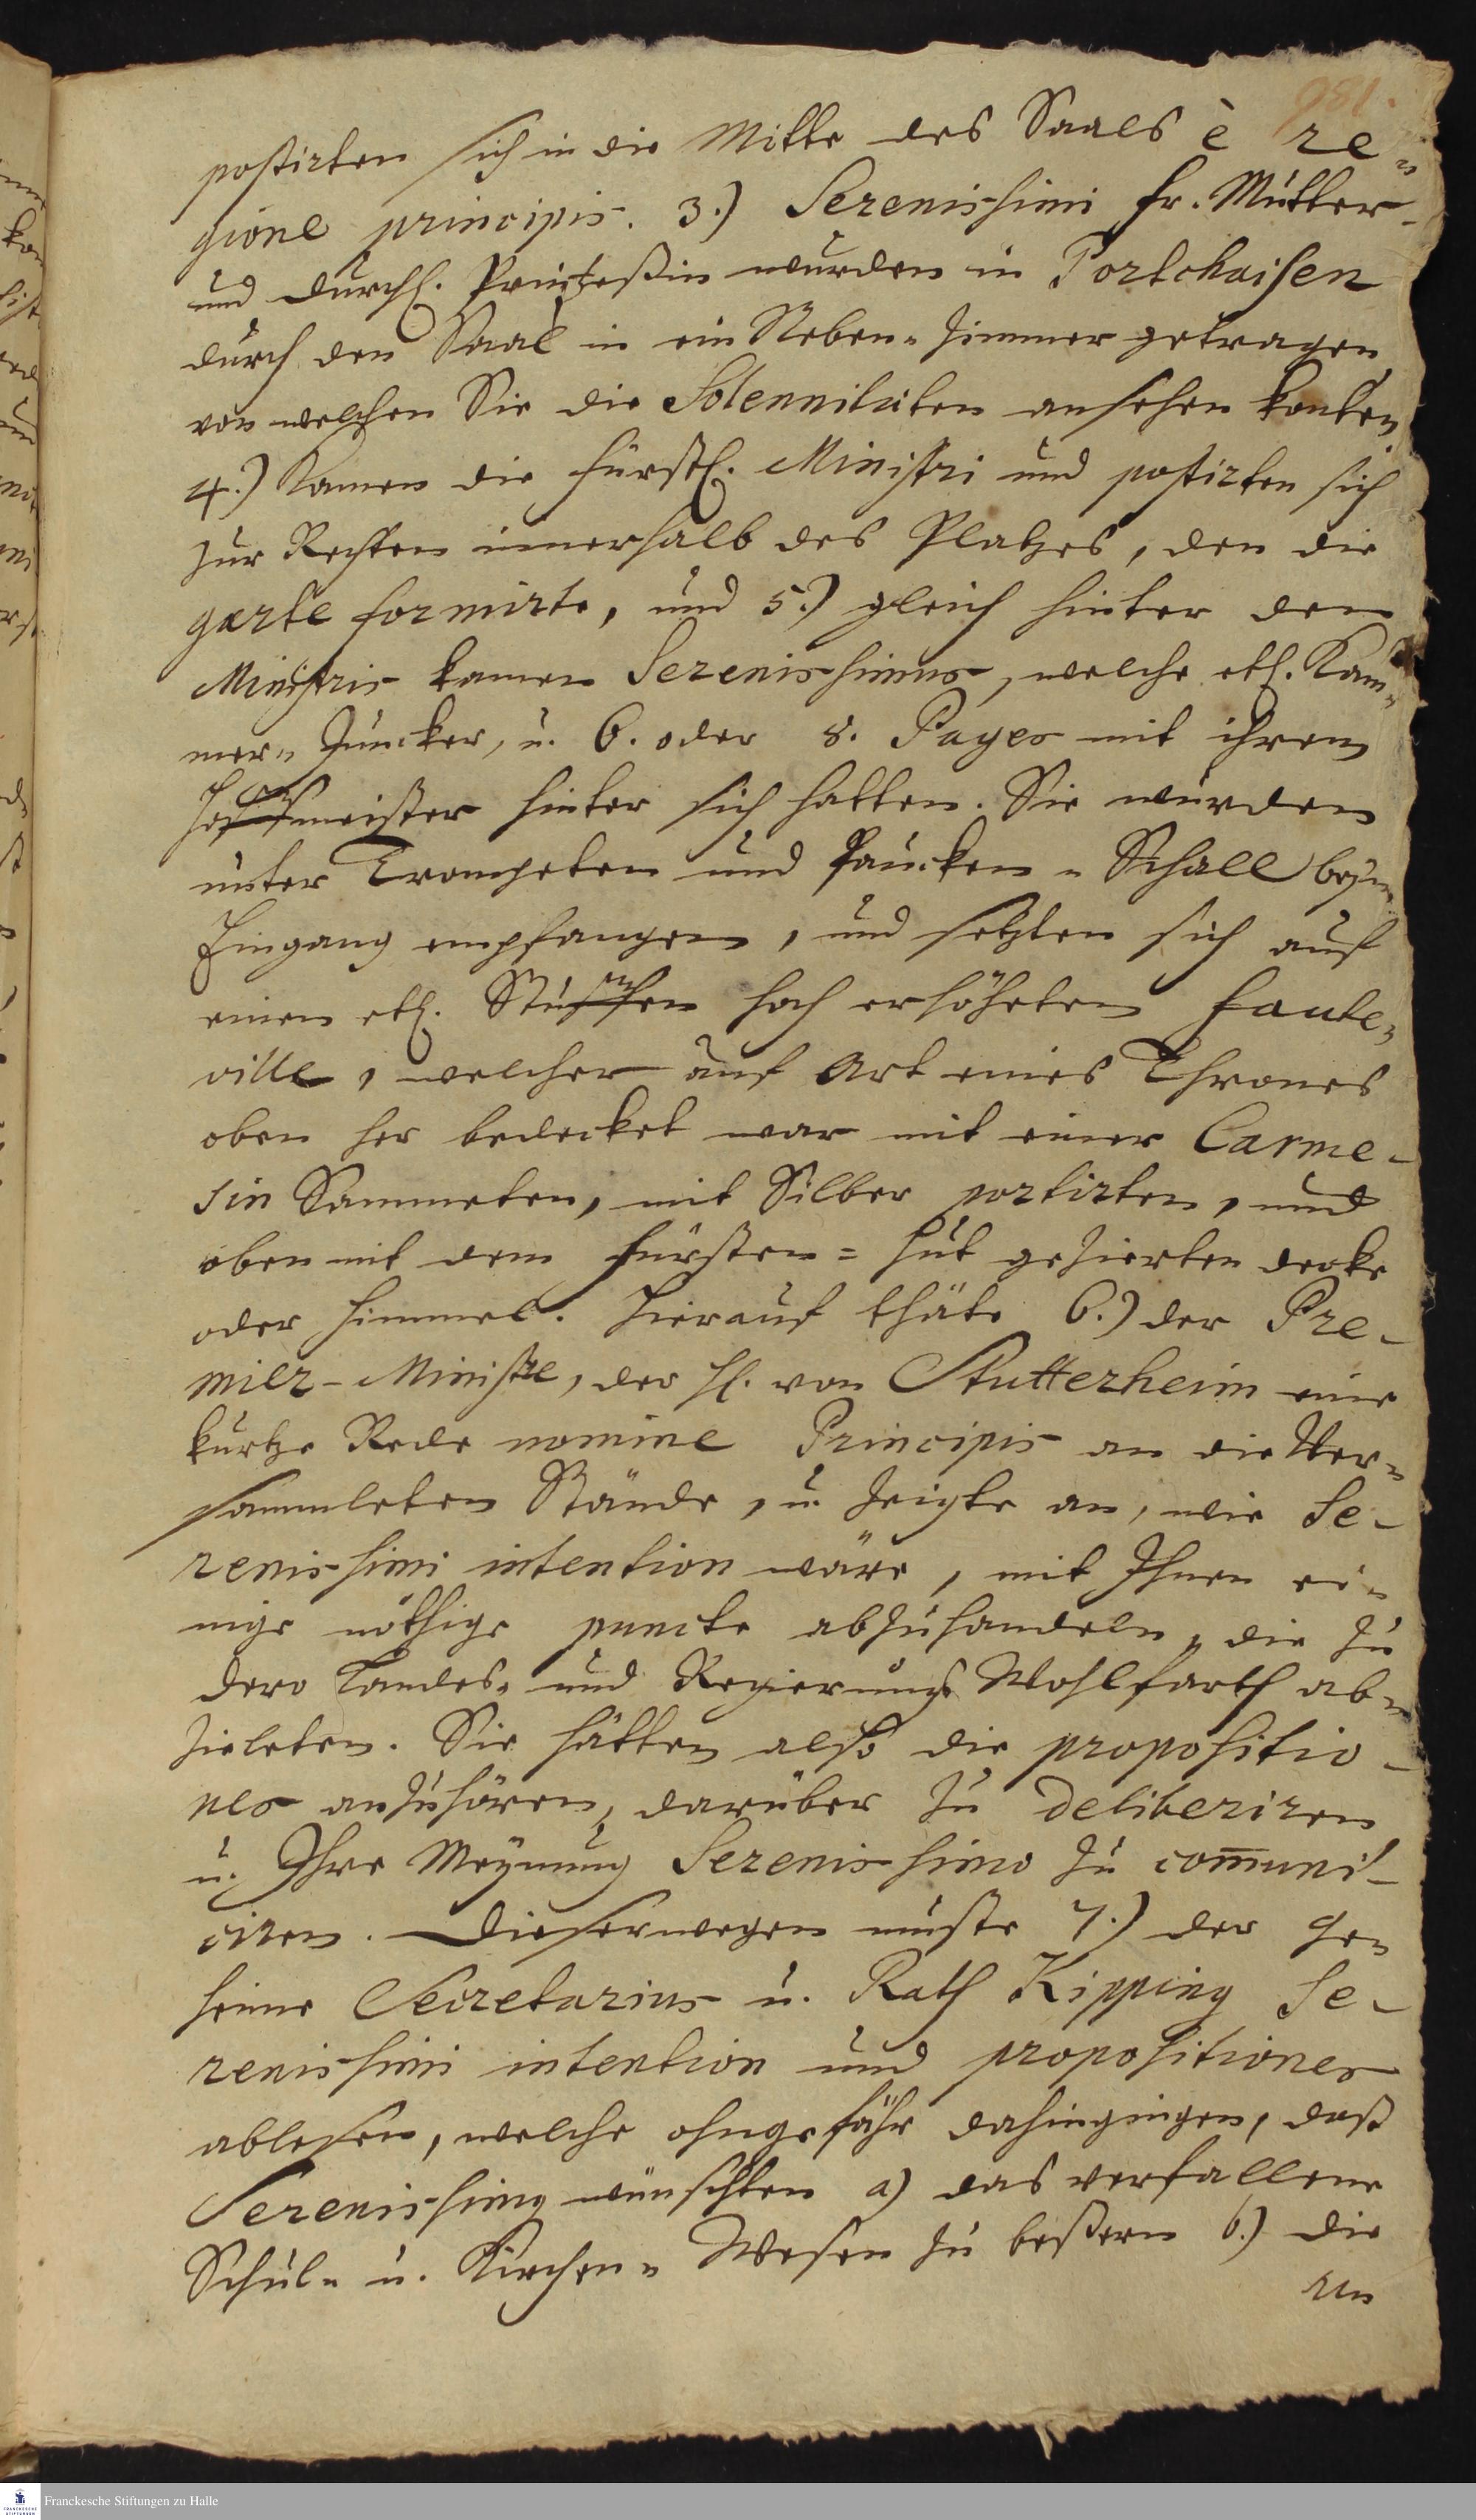 981.
postirten sich in die Mitte des Saals è re-
gione principis. 3.) Serenissimi Fr. Mutter
und Durchl. Printzeßin wurden in Portchaisen
durch den Saal in ein Neben-Zimmer getragen
von welchen Sie die Solennitäten ansehen konten.
4.) Kamen die Fürstl. Ministri und postirten sich
zur Rechten innerhalb des Platzes, den die
garte formirte, und 5.) gleich hinter den
Ministris kamen Serenissimus, welche etl. Kam-
mer-Juncker, u. 6. oder 8. Pages mit ihrem
Hoffmeister hinter sich hatten. Sie wurden
unter Trompeten und Paucken-Schall beym
Eingang empfangen, und setzten sich auf
einen etl. Stuffen hoch erhöheten Faute-
ville, welcher auf Art eines Thrones
oben her bedecket war mit einer Carme-
sin Sammeten, mit Silber portirten, und
oben mit dem Fürsten-Hut gezierten decke
oder Himmel. Hierauf thäte 6.) der Pre-
mier-Ministre, der H. von Stutterheim eine
kurtze Rede nomine Principis an die Ver-
sammleten Stände, u. zeigte an, wie Se-
renissimi intention wäre, mit Ihnen ei-
nige nöthige puncte abzuhandeln, die zu
dero Landes- und Regierungs Wohlfarth ab-
zieleten. Sie hätten also die propositio-
nes anzuhören, darüber zu deliberiren
u. Ihre Meynung Serenissimo zu com̄uni-
ciren. Dieserwegen muste 7.) der Ge-
heime Secretarius u. Rath Kipping Se-
renissimi intention und propositiones
ablesen, welche ohngefähr dahingingen, daß
Serenissimus wünschten a) das verfallene
Schul- u. Kirchen-Wesen zu beßern b.) die